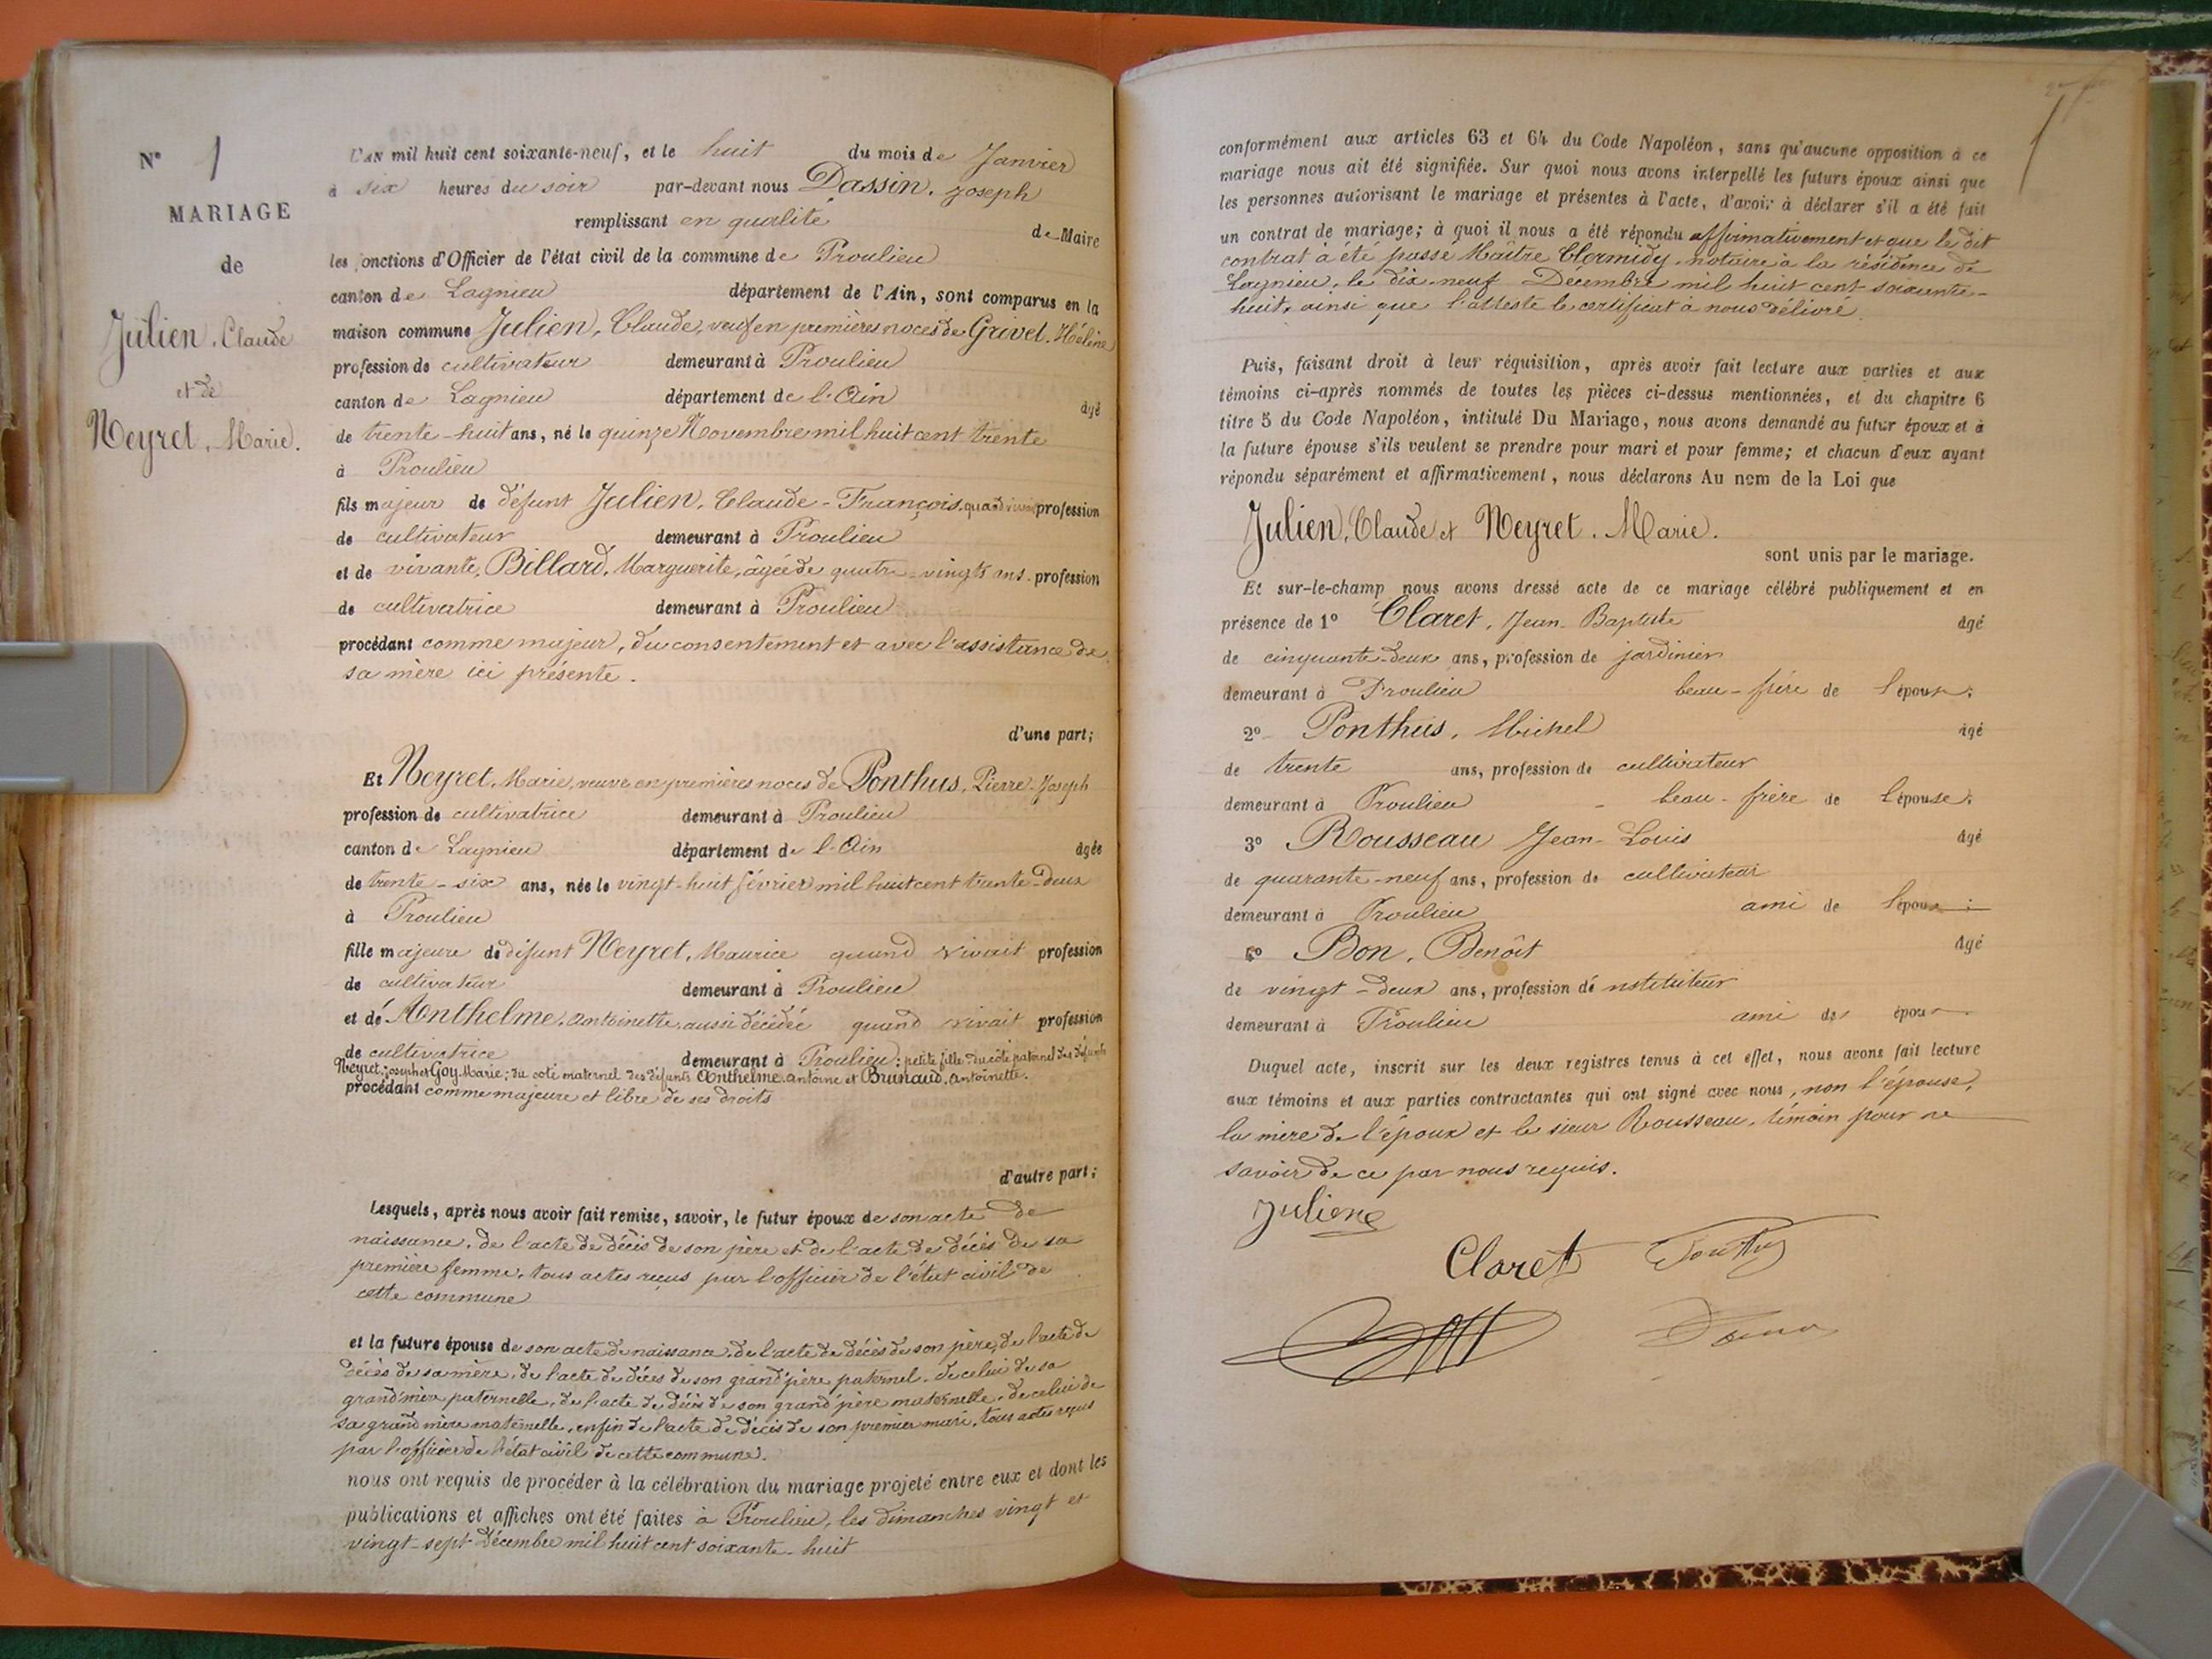 N° 1
MARIAGE
de
Julien, Claude
et de
Neyret, Marie.
L'AN mil huit cent soixante-neuf, et le huit du mois de Janvier
à six heures du soir par-devant nous Dassin, Joseph
remplissant en qualité de Maire
les fonctions d'Officier de l'état civil de la commune de Proulieu
canton de Lagnieu département de l'Ain, sont comparus en la
maison commune Julien, Claude, veuf en premières noces de Grivel, Hélène
profession de cultivateur demeurant à Proulieu
canton de Lagnieu département de l'Ain âgé
de trente-huit ans, né le quinze Novembre mil huit cent trente
à Proulieu
fils majeur de défunt Julien, Claude-François, quand vivait profession
de cultivateur demeurant à Proulieu
et de vivante, Billard, Marguerite, âgée de quatre-vingts ans profession
de cultivatrice demeurant à Proulieu
procédant comme majeur, du consentement et avec l'assistance de
sa mère ici présente.
d'une part;
Et Neyret, Marie, veuve en premières noces de Ponthus, Pierre-Joseph
profession de cultivatrice demeurant à Proulieu
canton de Lagnieu département de l'Ain âgée
de trente-six ans, née le vingt-huit février mil huit cent trente-deux
à Proulieu
fille majeure de défunt Neyret, Maurice quand vivait profession
de cultivateur demeurant à Proulieu
et de Anthelme, Antoinette, aussi décédée quand vivait profession
de cultivatrice demeurant à Proulieu; petite fille du côté paternel des défunts
Neyret, Joseph et Goy, Marie; du coté maternel des défunts Anthelme, Antoine et Brunaud, Antoinette.
procédant comme majeure et libre de ses droits
d'autre part;
Lesquels, après nous avoir fait remise, savoir, le futur époux de son acte de
naissance, de l'acte de décès de son père et de l'acte de décès de sa
première femme, tous actes reçus par l'officier de l'état civil de
cette commune
et la future épouse de son acte de naissance, de l'acte de décès de son père, de l'acte de
décès de sa mère, de l'acte de décès de son grand'père paternel, de celui de sa
grand'mère paternelle, de l'acte de décès de son grand'père maternelle, de celui de
sa grand'mère maternelle, enfin de l'acte de décès de son premier mari, tous actes reçus
par l'officier de l'état civil de cette commune.
nous ont requis de procéder à la célébration du mariage projeté entre eux et dont les
publications et affiches ont été faites à Proulieu, les dimanches vingt et
vingt-sept Décembre mil huit cent soixante-huit
conformément aux articles 63 et 64 du Code Napoléon, sans qu'aucune opposition à ce
mariage nous ait été signifiée. Sur quoi nous avons interpellé les futurs époux ainsi que
les personnes autorisant le mariage et présentes à l'acte, d'avoir à déclarer s'il a été fait
un contrat de mariage; à quoi il nous a été répondu affirmativement et que le dit
contrat à été passé Maître Clermidy, notaire à la résidence de
Lagnieu, le dix-neuf Décembre mil huit cent soixante-
huit, ainsi que l'atteste le certificat à nous délivré.
Puis, faisant droit à leur réquisition, après avoir fait lecture aux parties et aux
témoins ci-après nommés de toutes les pièces ci-dessus mentionnées, et du chapitre 6
titre 5 du Code Napoléon, intitulé Du Mariage, nous avons demandé au futur époux et à
la future épouse s'ils veulent se prendre pour mari et pour femme; et chacun d'eux ayant
répondu séparément et affirmativement, nous déclarons Au nom de la Loi que
Julien, Claude et Neyret, Marie.
sont unis par le mariage.
Et sur-le-champ nous avons dressé acte de ce mariage célébré publiquement et en
présence de 1° Claret, Jean-Baptiste âgé
de cinquante-deux ans, profession de jardinier
demeurant à Proulieu beau-frère de l'époux;
2° Ponthus, Michel âgé
de trente ans, profession de cultivateur
demeurant à Proulieu beau-frère de l'épouse;
3° Rousseau Jean-Louis âgé
de quarante-neuf ans, profession de cultivateur
demeurant à Proulieu ami de l'époux;
4° Bon, Benoît âgé
de vingt-deux ans, profession d'instituteur
demeurant à Proulieu ami des époux
Duquel acte, inscrit sur les deux registres tenus à cet effet, nous avons fait lecture
aux témoins et aux parties contractantes qui ont signé avec nous, non l'épouse,
la mère de l'époux et le sieur Rousseau, témoin pour ne
savoir de ce par nous requis.
Julien
Claret Ponthus